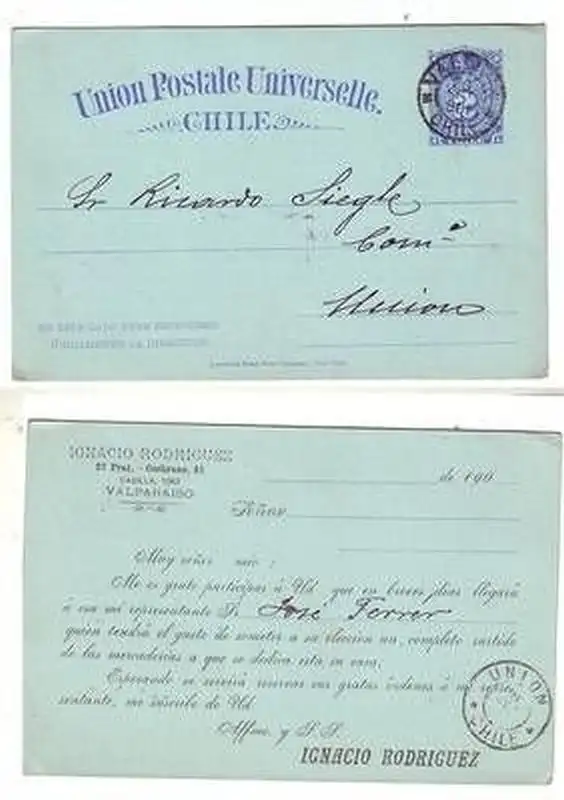 Union Postale Universelle.
CHILE
Sr Ricardo Siegle
Comº
Union
EN ESTE LADO DEBE ESCRIBIRSE
UNICAMENTE LA DIRECCION
CHILE
IGNACIO RODRIGUEZ
Prat, - Cochrane,
CASILLA
VALPARAISO
de 190
Señor
Muy señor mio:
Me es grato participar á Ud. que en breves dias llegará
á esa mi representante Sr. José Ferrer
quien tendrá el gusto de someter a su eleccion un completo surtido
de las mercaderias a que se dedica esta su casa.
Esperando se servirá reservar sus gratas órdenes á mi repre-
sentante, me suscribo de Ud.
Affmo. y S. S.
IGNACIO RODRIGUEZ
UNION
CHILE